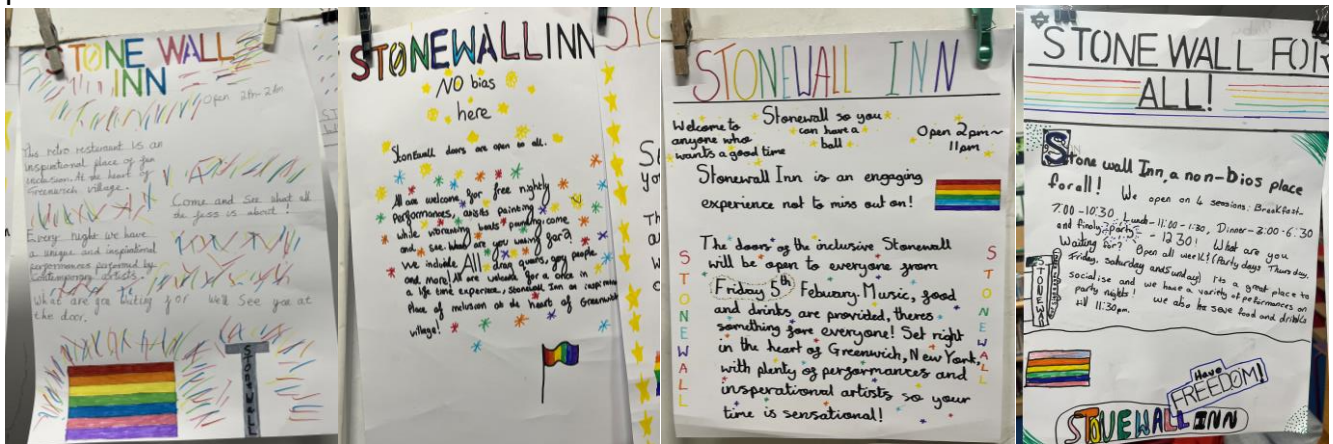 STONE WALL
INN
Open 2Pm-2Am
This retro resteraunt is an
inspirational place of fun
inclusion. At the heart of
Greenwich village.
Come and See what all
the fuss is about!
Every night we have
a unique and inspirational
performance performed by
contemporary artists.
What are you waiting for We'll See you at
the door.
STONEWALL
STONEWALL INN
NO bias
here
Stonewall doors are open to all.
All are welcome for free nightly
Performances, artists painting
while vibrating beats pounding, come
and see. What are you waiting for?
We include All drag queens, gay people
and more! All are welcome for a once in
a life time experience, Stonewall Inn an inspiring
Place of inclusion at the heart of Greenwich
village!
STONEWALL INN
Welcome to
anyone who
wants a good time
Stonewall so you
can have a
ball
Open 2pm~
11pm
Stonewall Inn is an engaging
experience not to miss out on!
The doors of the inclusive Stonewall
will be open to everyone from
Friday 5th Febuary. Music, food
and drinks are provided, theres
something fore everyone! Set right
in the heart of Greenwich, New York,
with plenty of performances and
insperational artists so your
time is sensational!
STONEWALL
STONEWALL
STONE WALL FOR
ALL!
Stone wall Inn, a non-bios place
for all! We open on 4 sessions: Breakfast-
7:00-10:30, Lunch-11:00-1:30, Dinner-3:00-6:30
and finaly party - 12:30! What are you
Waiting for? Open all week! (Party days Thursday,
Friday, Saturday and Sunday) Its a great place to
socialise and we have a variety of peformances on
party nights! We also he save food and drinks
till 11:30pm.
STONEWALL
Have
FREEDOM!
STONEWALL INN